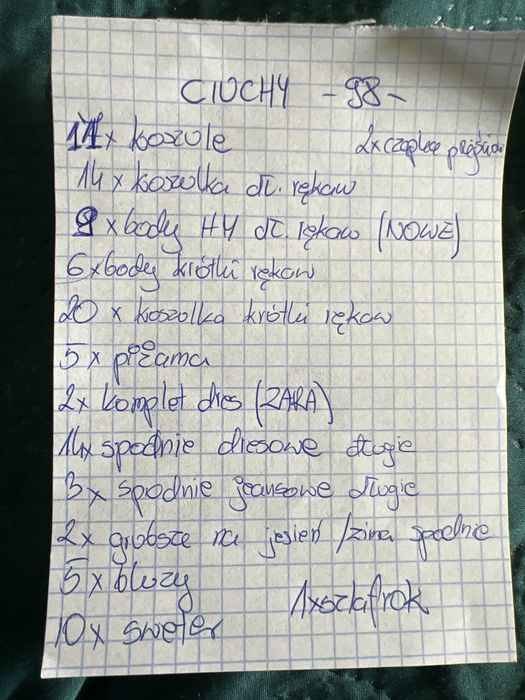 CIUCHY - 98 -
11x koszule
2x czapka przejścio
14 x koszulka dł. rękaw
9 x body HM dł. rękaw (NOWE)
6 x body krótki rękaw
20 x koszulka krótki rękaw
5 x piżama
2x komplet dres (ZARA)
14x spodnie dresowe długie
3x spodnie jeansowe długie
2x grubsze na jesień /zima spodnie
5 x bluzy
1xszlafrok
10x sweter